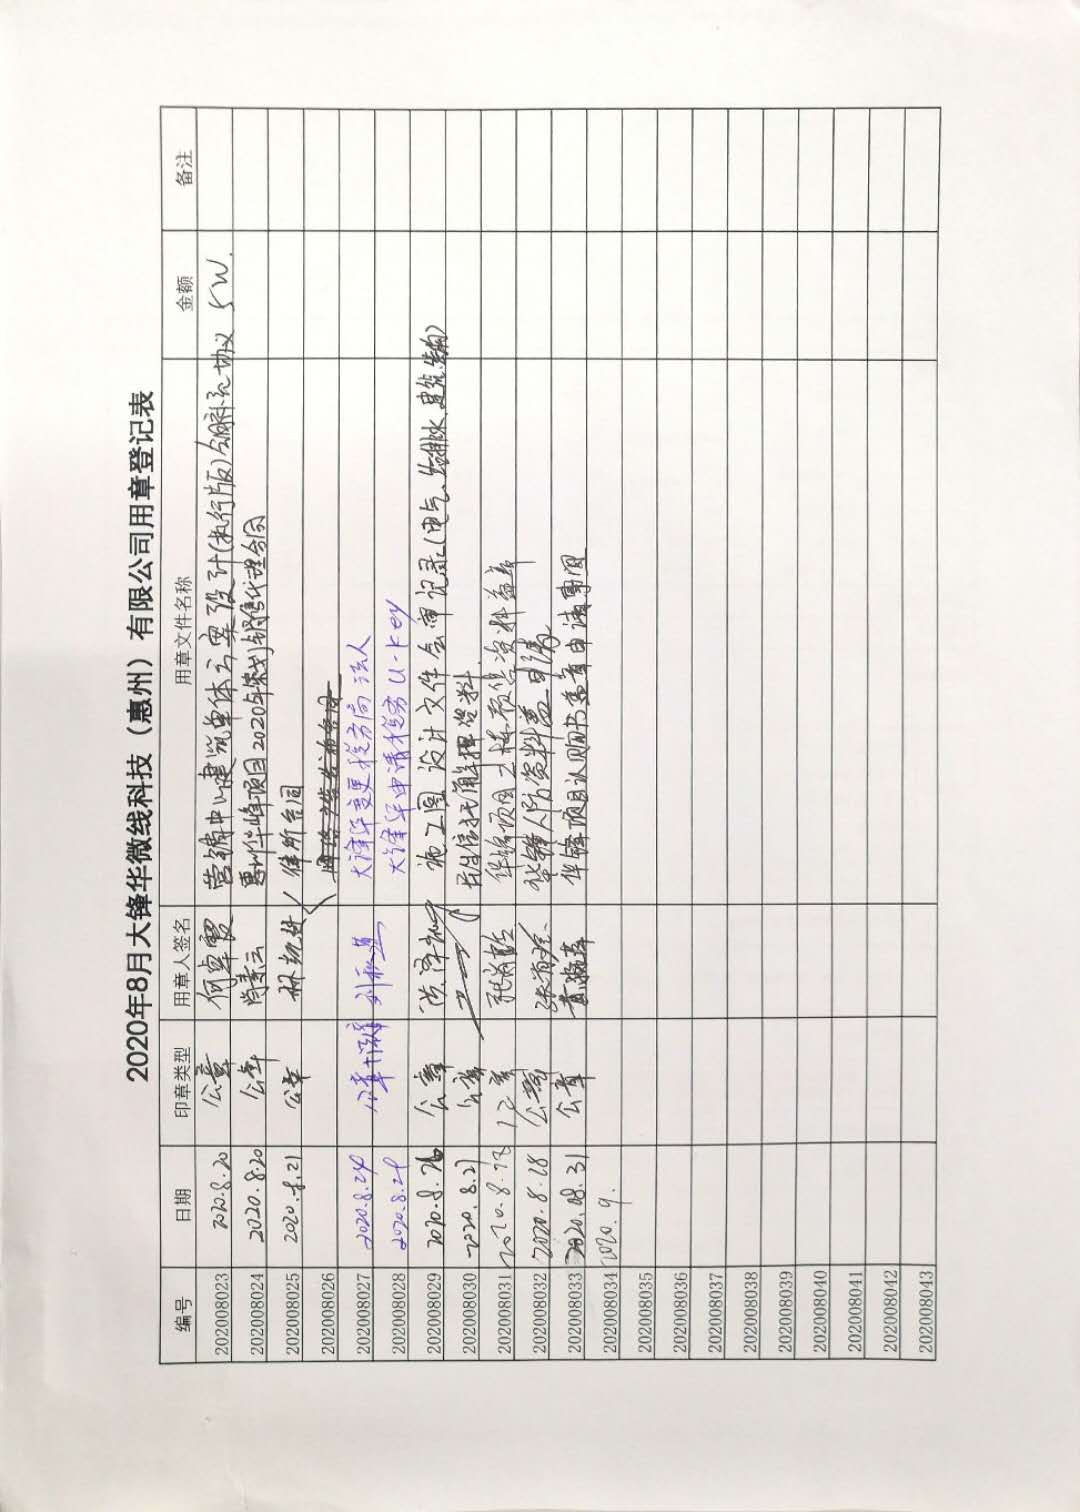 2020年8月大锋华微线科技（惠州）有限公司用章登记表
编号 日期 印章类型 用章人签名 用章文件名称 金额 备注
202008023 2020.8.20 公章 何卓霞 营销中心建筑单体方案设计(执行版)合同补充协议 5W.
202008024 2020.8.20 公章 肖素云 惠州华峰项目2020年策划销售代理合同
202008025 2020.8.21 公章 合同
202008026
202008027 2020.8.24 刘 大锋华变更税务局法人
202008028 2020.8.24 大锋华申请税务U-key
202008029 2020.8.26 公章 洪泽 施工图设计文件会审记录(电气、给排水、建筑、结构)
202008030 2020.8.27 公章 资料
202008031 2020.8. 张 华锋项目 资料盖章
202008032 2020.8.28 公章 张 华锋人防资料盖章申请
202008033 2020.08.31 公章 华锋项目认购书盖章申请事宜
202008034 2020.9.
202008035
202008036
202008037
202008038
202008039
202008040
202008041
202008042
202008043